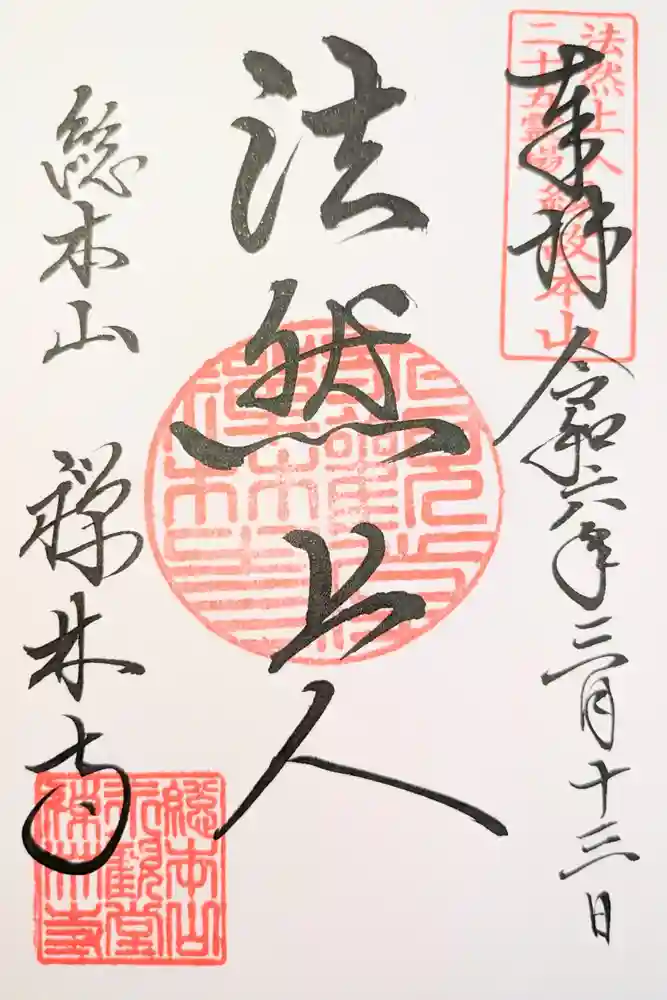 奉拝 令和六年三月十三日
法然上人
二十五霊場
本山
法然上人
総本山 禅林寺
総本山
永観堂
禅林寺